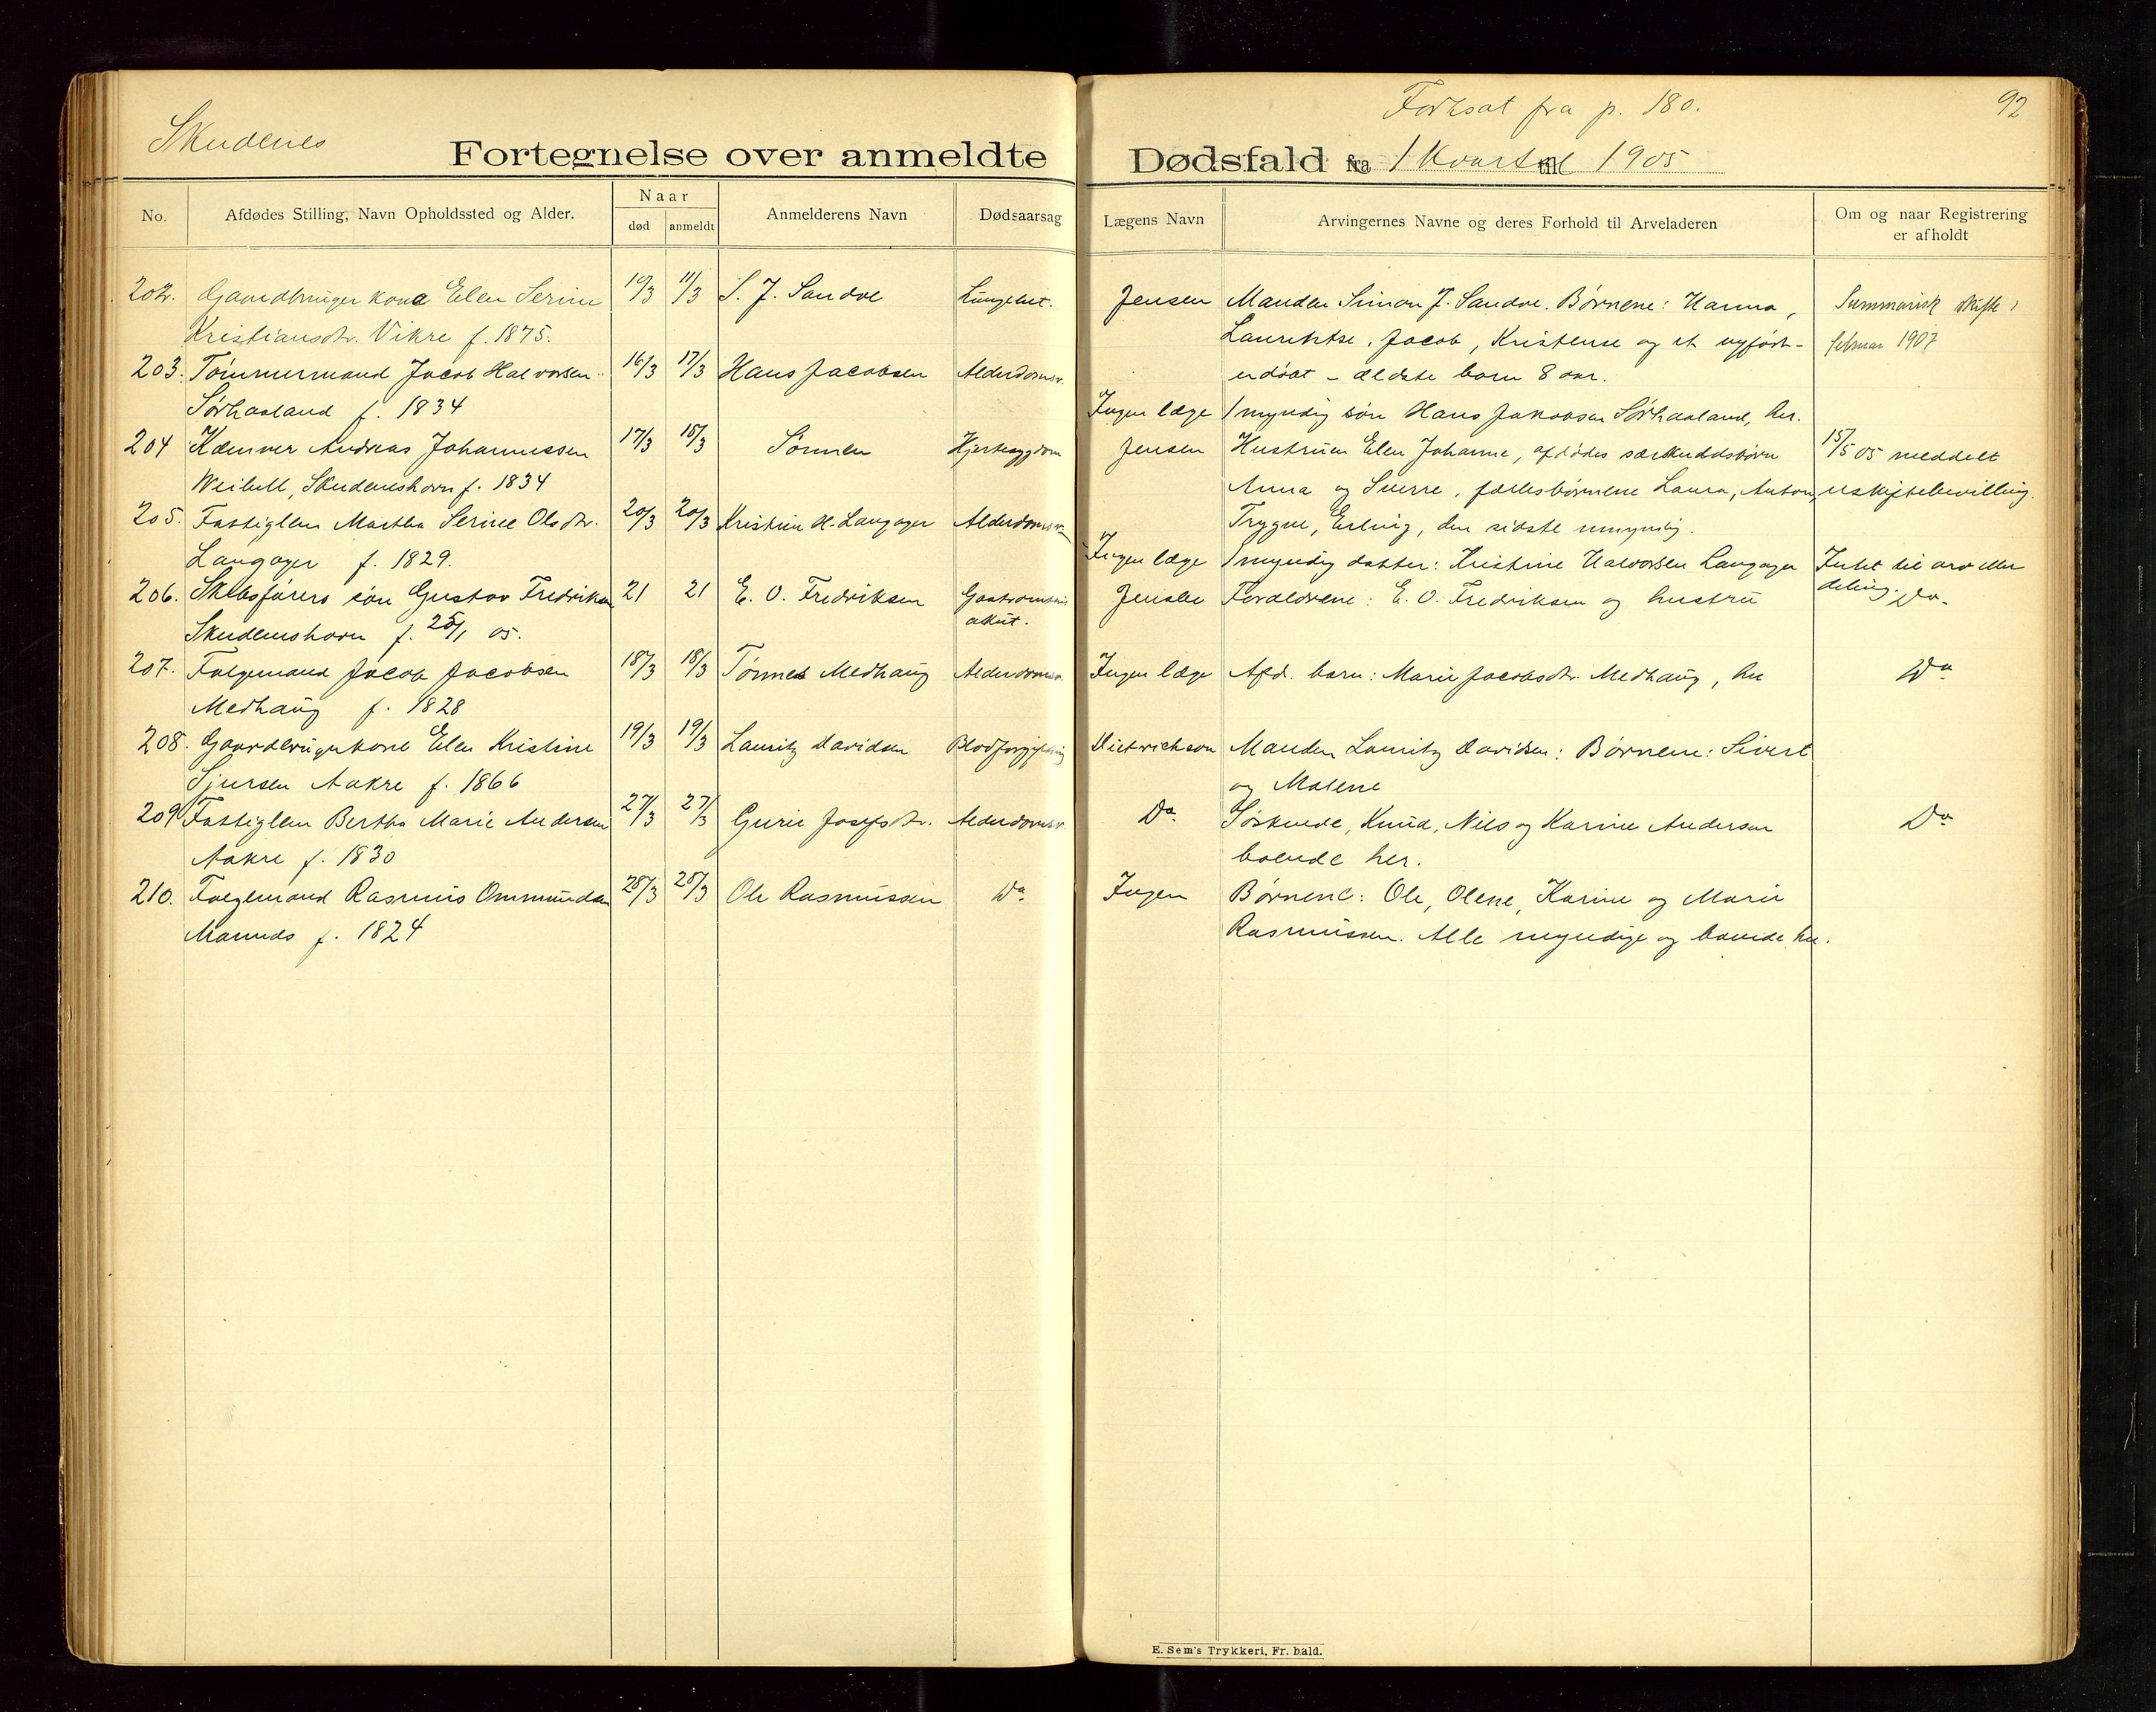 Skudenes
Fortsat fra p. 180.
92
Fortegnelse over anmeldte Dødsfald fra 1 Kvartal til 1905
No.
Afdødes Stilling, Navn Opholdssted og Alder.
Naar
død
anmeldt
Anmelderens Navn
Dødsaarsag
Lægens Navn
Arvingernes Navne og deres Forhold til Arveladeren
Om og naar Registrering
er afholdt
202. Gaardbruger kone Elen Serine 10/3 11/3 S. J. Sandve Lungebet. Jensen Manden Simon J. Sandve. Børnene: Hanna, Summarisk skifte i
Kristiansdtr. Vikre f. 1875. Jacob, Kristense og et nyfødt februar 1907
203. Tømmermand Jacob Halvorsen 16/3 17/3 Hans Jacobsen Alderdomsv. udøbt - ældste barn 8 aar.
Sørhaaland f. 1834 Ingen læge 1 myndig søn Hans Jakobsen Sørhaaland, her.
204 Kæmner Andreas Johannessen 17/3 18/3 Sønnen Hjertesygdom Jensen Hustruen Elen Johanne, afdødes særkuldsbørn 15/5 05 meddelt
Weibull, Skudeneshavn f. 1834 Anna og Sverre, fællesbørnene Laura, Anton, uskiftebevilling.
205. Fattiglem Martha Serine Olsdtr. 20/3 20/3 Kristine H. Langager Alderdomsv. Trygve, Erling, den sidste umyndig.
Langager f. 1829. Ingen læge 1 myndig datter: Kristine Halvorsen Langager Intet til arv eller
206. Skibsførers søn Gustav Fredriksen 21 21 E. O. Fredriksen Jensen Forældrene: E. O. Fredriksen og hustru deling. Do.
Skudeneshavn f. 25/1 05. akut.
207. Folgemand Jacob Jacobsen 18/3 18/3 Tønnes Medhaug Alderdomsv. Ingen læge Afd. barn: Marie Jacobsdtr. Medhaug, her Do
Medhaug f. 1828
208. Gaardbrugerkone Elen Kristine 19/3 19/3 Lauritz Davidsen Blodforgiftning Dietrichson Manden Lauritz Davidsen: Børnene: Sivert
Sjursen Aakre f. 1866 og Malene
209 Fattiglem Bertha Marie Andersen 27/3 27/3 Gurie Josefsdtr. Alderdomsv. Do. Søskende, Knud, Nils og Karine Andersen Do
Aakre f. 1830 boende her.
210. Folgemand Rasmus Ommundsen 28/3 28/3 Ole Rasmussen Do. Ingen Børnene: Ole, Olene, Karine og Marie
f. 1824 Rasmussen. Alle myndige og boende her.
E. Sem's Trykkeri, Fr. hald.